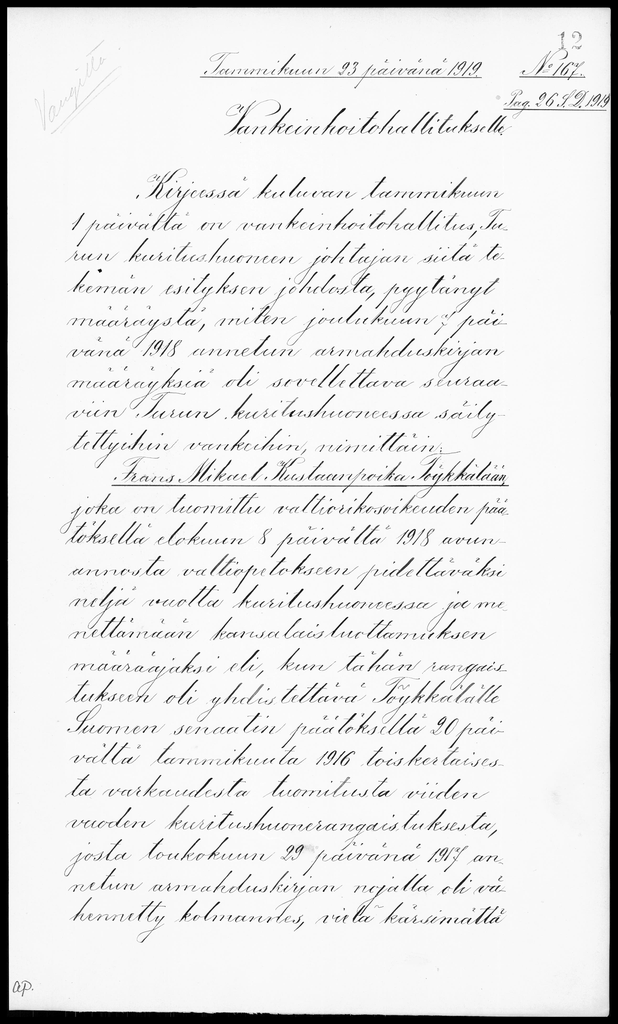 12
Vangittu.
Tammikuun 23 päivänä 1919.
No 167.
Pag. 26 S.D. 1919
Vankeinhoitohallitukselle.
Kirjeessä kuluvan tammikuun
1 päivältä on vankeinhoitohallitus, Tu-
run kuritushuoneen johtajan siitä te-
kemän esityksen johdosta, pyytänyt
määräystä, miten joulukuun 7 päi-
vänä 1918 annetun armahduskirjan
määräyksiä oli sovellettava seuraa-
viin Turun kuritushuoneessa säily-
tettyihin vankeihin, nimittäin:
Frans Mikael Kustaanpoika Töykkälään,
joka on tuomittu valtiorikosoikeuden pää-
töksellä elokuun 8 päivältä 1918 avun-
annosta valtiopetokseen pidettäväksi
neljä vuotta kuritushuoneessa ja me-
nettämään kansalaisluottamuksen
määräajaksi eli, kun tähän rangais-
tukseen oli yhdistettävä Töykkälälle
Suomen senaatin päätöksellä 20 päi-
vältä tammikuuta 1916 toiskertaises-
ta varkaudesta tuomitusta viiden
vuoden kuritushuonerangaistuksesta,
josta toukokuun 29 päivänä 1917 an-
netun armahduskirjan nojalla oli vä-
hennetty kolmannes, vielä kärsimättä
ap.